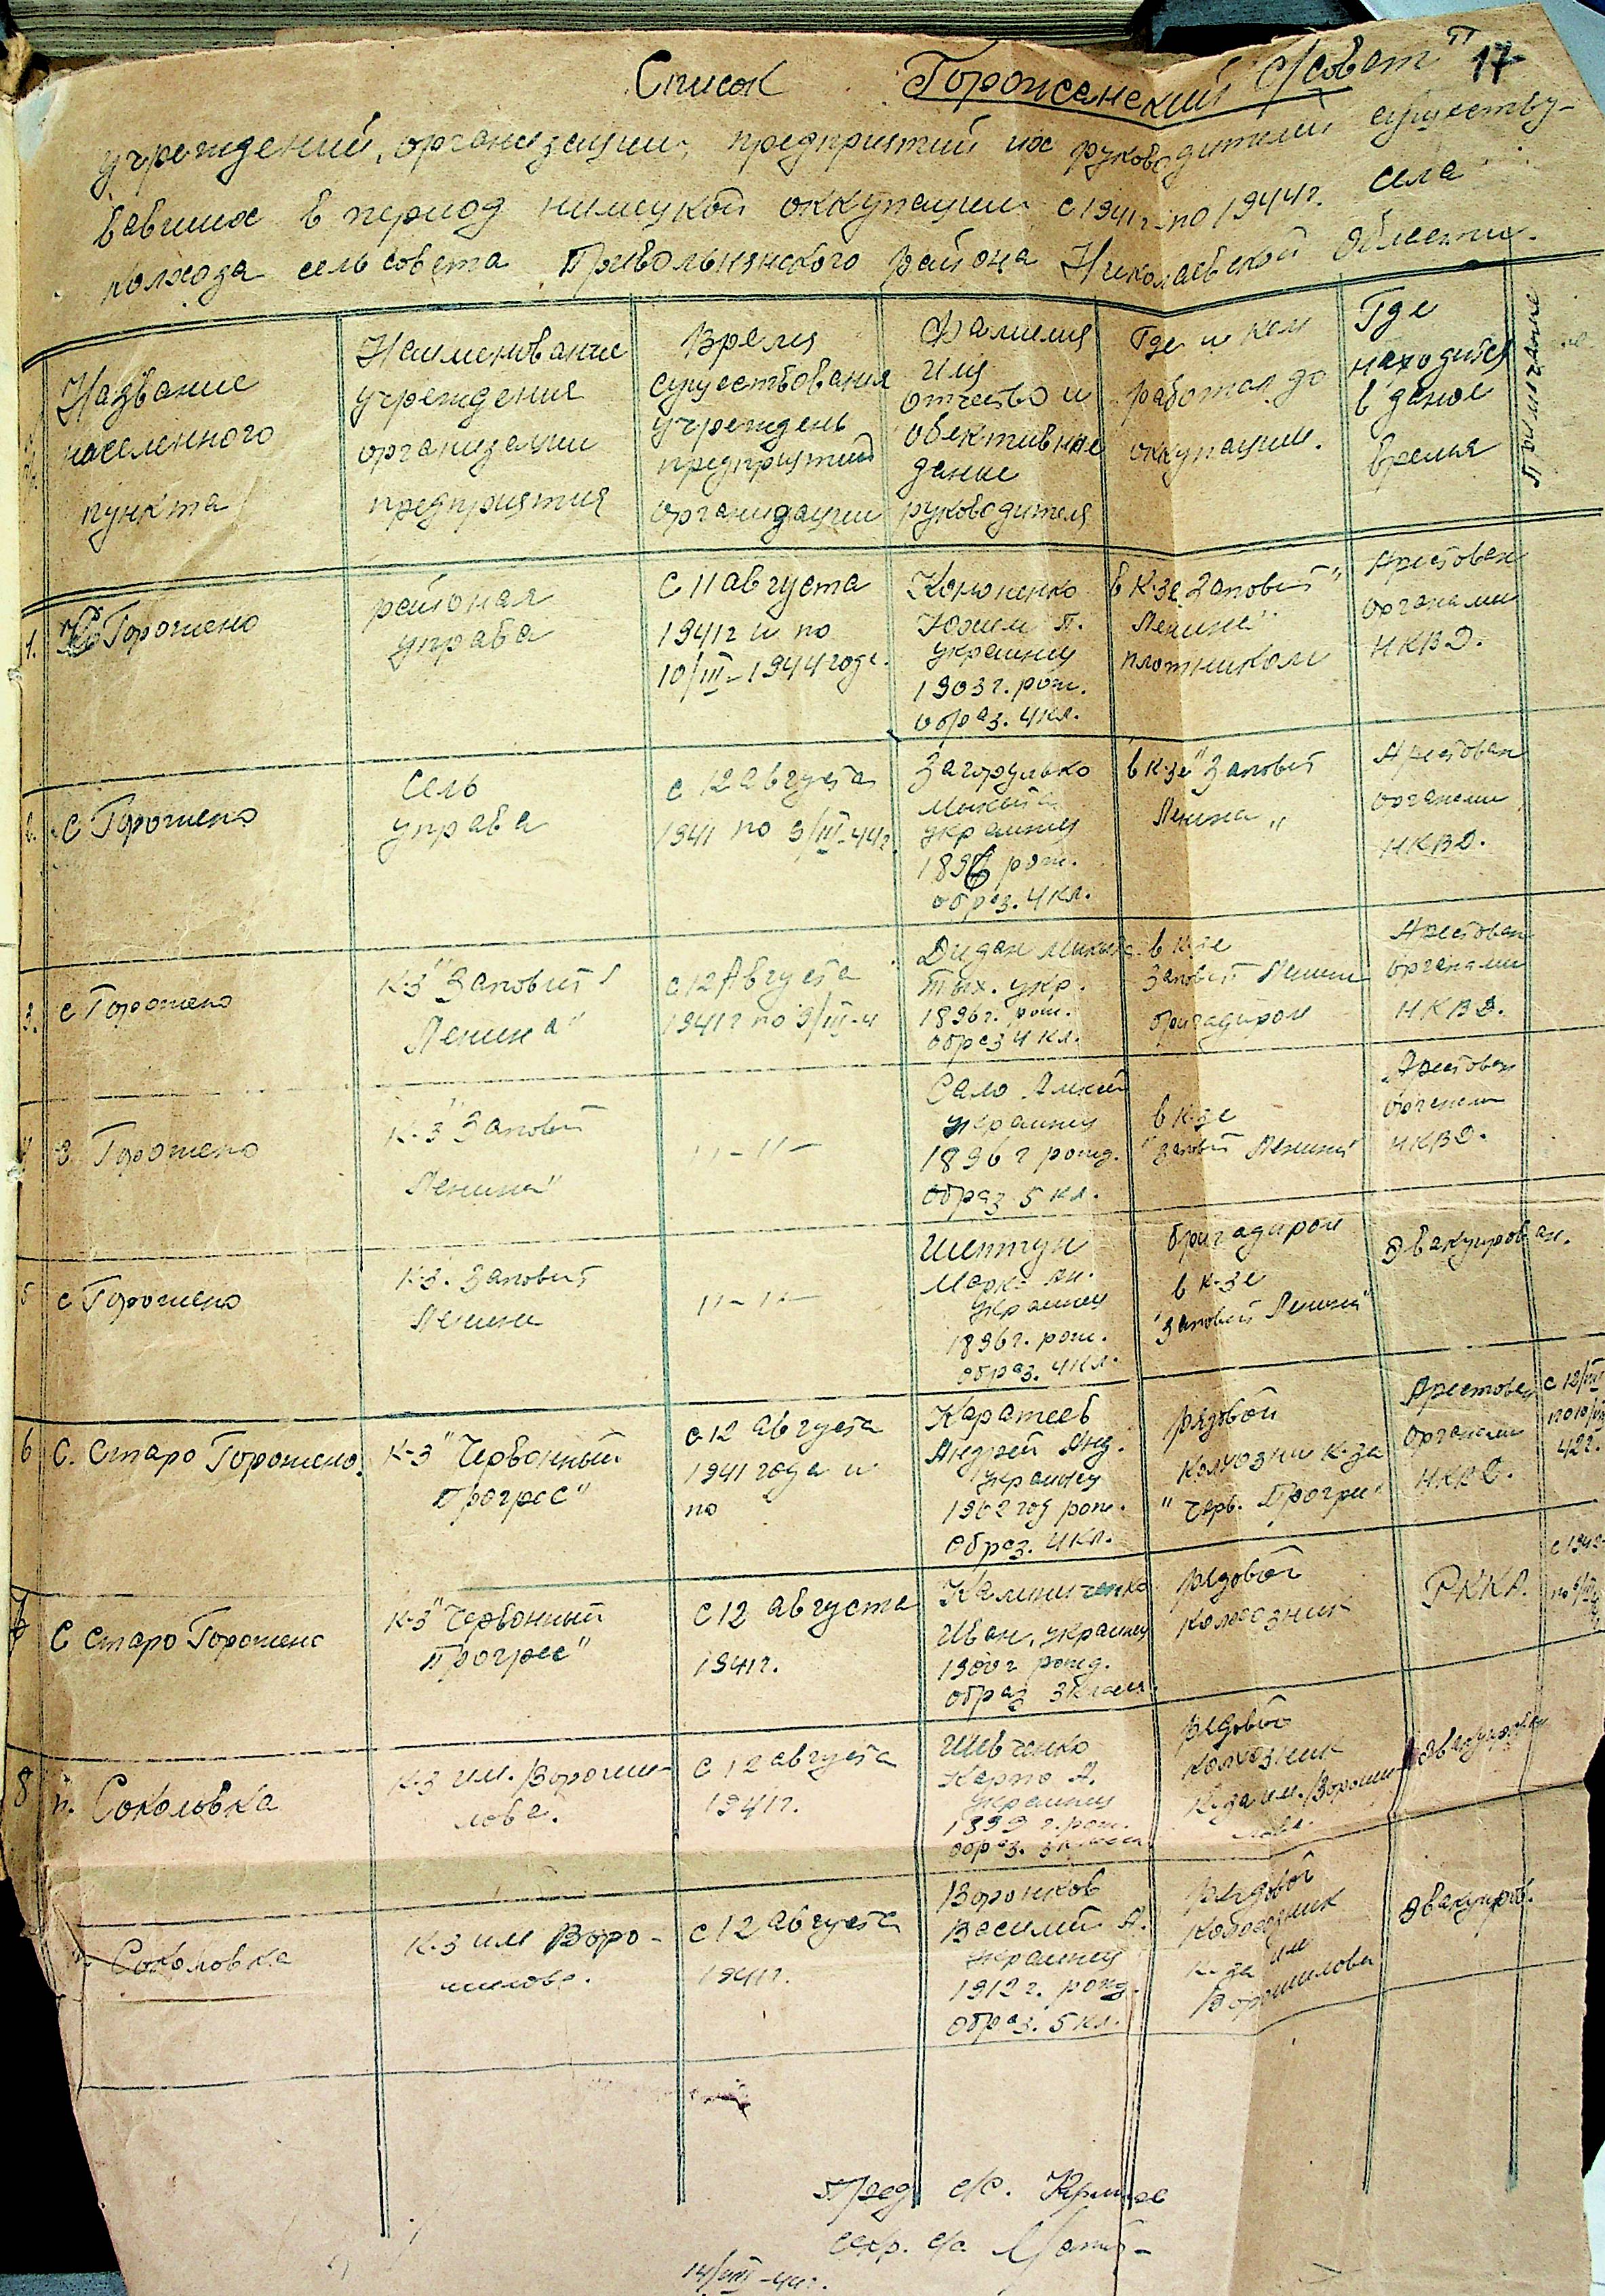 Список Горожанский с/совет 17
учреждений, организации, предприятий их руководителей существу-
вавших в период нимецкой оккупации с 1941г по 1944г. села
колхоза сельсовета Привольнянского района Николаевской области.
Название
населенного
пункта
Наименование
учреждения
организации
предприятия
Время
существования
учреждень
предприятий
организации
Фамилия
имя
отчество и
обективное
даные
руководителя
Где и кем
работал до
оккупации.
Где
находится
в даное
время
Примичание
1.
С Горожено
районая
управа
С 11 августа
1941г и по
10/III-1944 года.
Юхим П.
украинец
1903г. рож.
образ. 4 кл.
в К-зе „Заповит
Ленина"
плотником
Арестован
органами
НКВД.
2.
с Горожено
Сель
управа
с 12 августа
1941 по 9/III-44г.
Загорулько
украинец
1896 рож.
образ. 4 кл.
в к-зе "Заповит
Ленина"
Арестован
органами
НКВД.
3.
с Горожено
К-з "Заповит
Ленина"
с 12 Августа
1941г по 9/III-4
Дидан
Тих. укр.
1896г. рож.
образ 4 кл.
в к-зе
Заповит Ленина
бригадиром
Арестован
органами
НКВД.
с Горожено
К-з "Заповит
Ленина"
"-"-
Сало
украинец
1896г рожд.
образ 5 кл.
в к-зе
"Заповит Ленина"
Арестован
органами
НКВД.
5
с Горожено
К-з. Заповит
Ленина
"-"-
Шептун
Марк
украинец
1896г. рож.
образ. 4 кл.
бригадиром
в к-зе
"Заповит Ленина"
Эвакуирован.
6
С. Старо Горожено.
К-з "Червонный
Прогрес"
с 12 августа
1941 года и
по
Каратеев
Андрей Анд.
украинец
1902 год рож.
образ. 4 кл.
рядовой
колхозник к-за
"Черв. Прогрес"
Арестован
органами
НКВД.
с 12/VIII
42г.
7
С Старо Горожено
К-з "Червонный
Прогрес"
с 12 августа
1941г.
Калиниченко
Иван, украинец
1900г рожд.
образ 3 класса.
рядовой
колхозник
РККА.
с 1942
8
п. Соколовка
К-з им. Вороши-
лова.
С 12 августа
1941г.
Шевченко
Карпо А.
украинец
1899 г. рож.
образ. 3 класса
рядовой
колхозник
К-за им. Вороши-
лова.
Эвакуирован
п. Соколовка
К-з им Воро-
шилова.
с 12 августа
1941г.
Воронков
Василий А.
украинец
1912г. рожд.
образ. 5 кл.
рядовой
колхозник
к-за им
Ворошилова
Эвакуиров.
Пред с/с.
секр. с/с
14/VIII-44г.